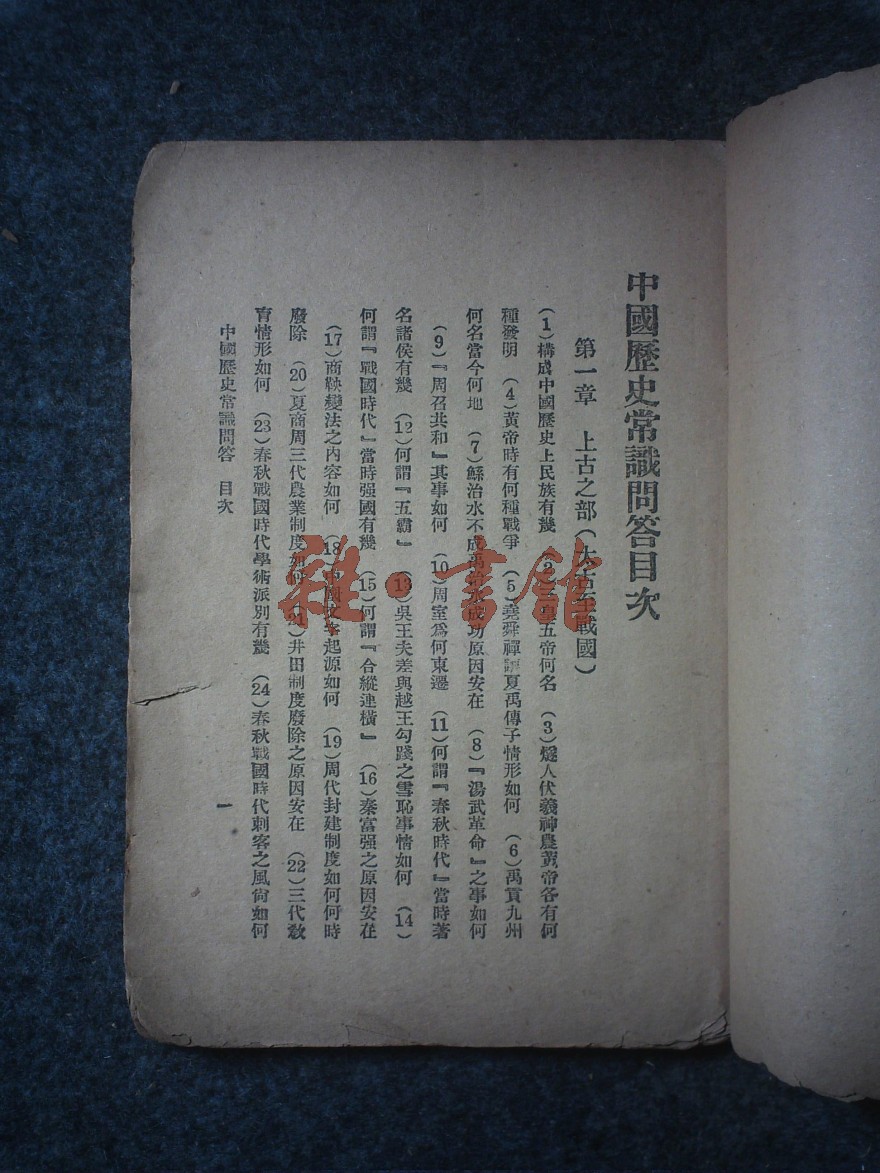 中國歷史常識問答目次
第一章　上古之部(太古至戰國)
(1)構成中國歷史上民族有幾　(2)三皇五帝何名　(3)燧人伏羲神農黃帝各有何
種發明　(4)黃帝時有何種戰爭　(5)堯舜禪讓夏禹傳子情形如何　(6)禹貢九州
何名當今何地　(7)鯀治水不成禹治水成功原因安在　(8)『湯武革命』之事如何
(9)『周召共和』其事如何　(10)周室爲何東遷　(11)何謂『春秋時代』當時著
名諸侯有幾　(12)何謂『五霸』　(13)吳王夫差與越王勾踐之雪恥事情如何　(14)
何謂『戰國時代』當時强國有幾　(15)何謂『合縱連橫』　(16)秦富强之原因安在
(17)商鞅變法之內容如何　(18)中國文字起源如何　(19)周代封建制度如何何時
廢除　(20)夏商周三代農業制度如何　(21)井田制度廢除之原因安在　(22)三代敎
育情形如何　(23)春秋戰國時代學術派別有幾　(24)春秋戰國時代刺客之風尙如何
中國歷史常識問答　目次　一
雜·書館